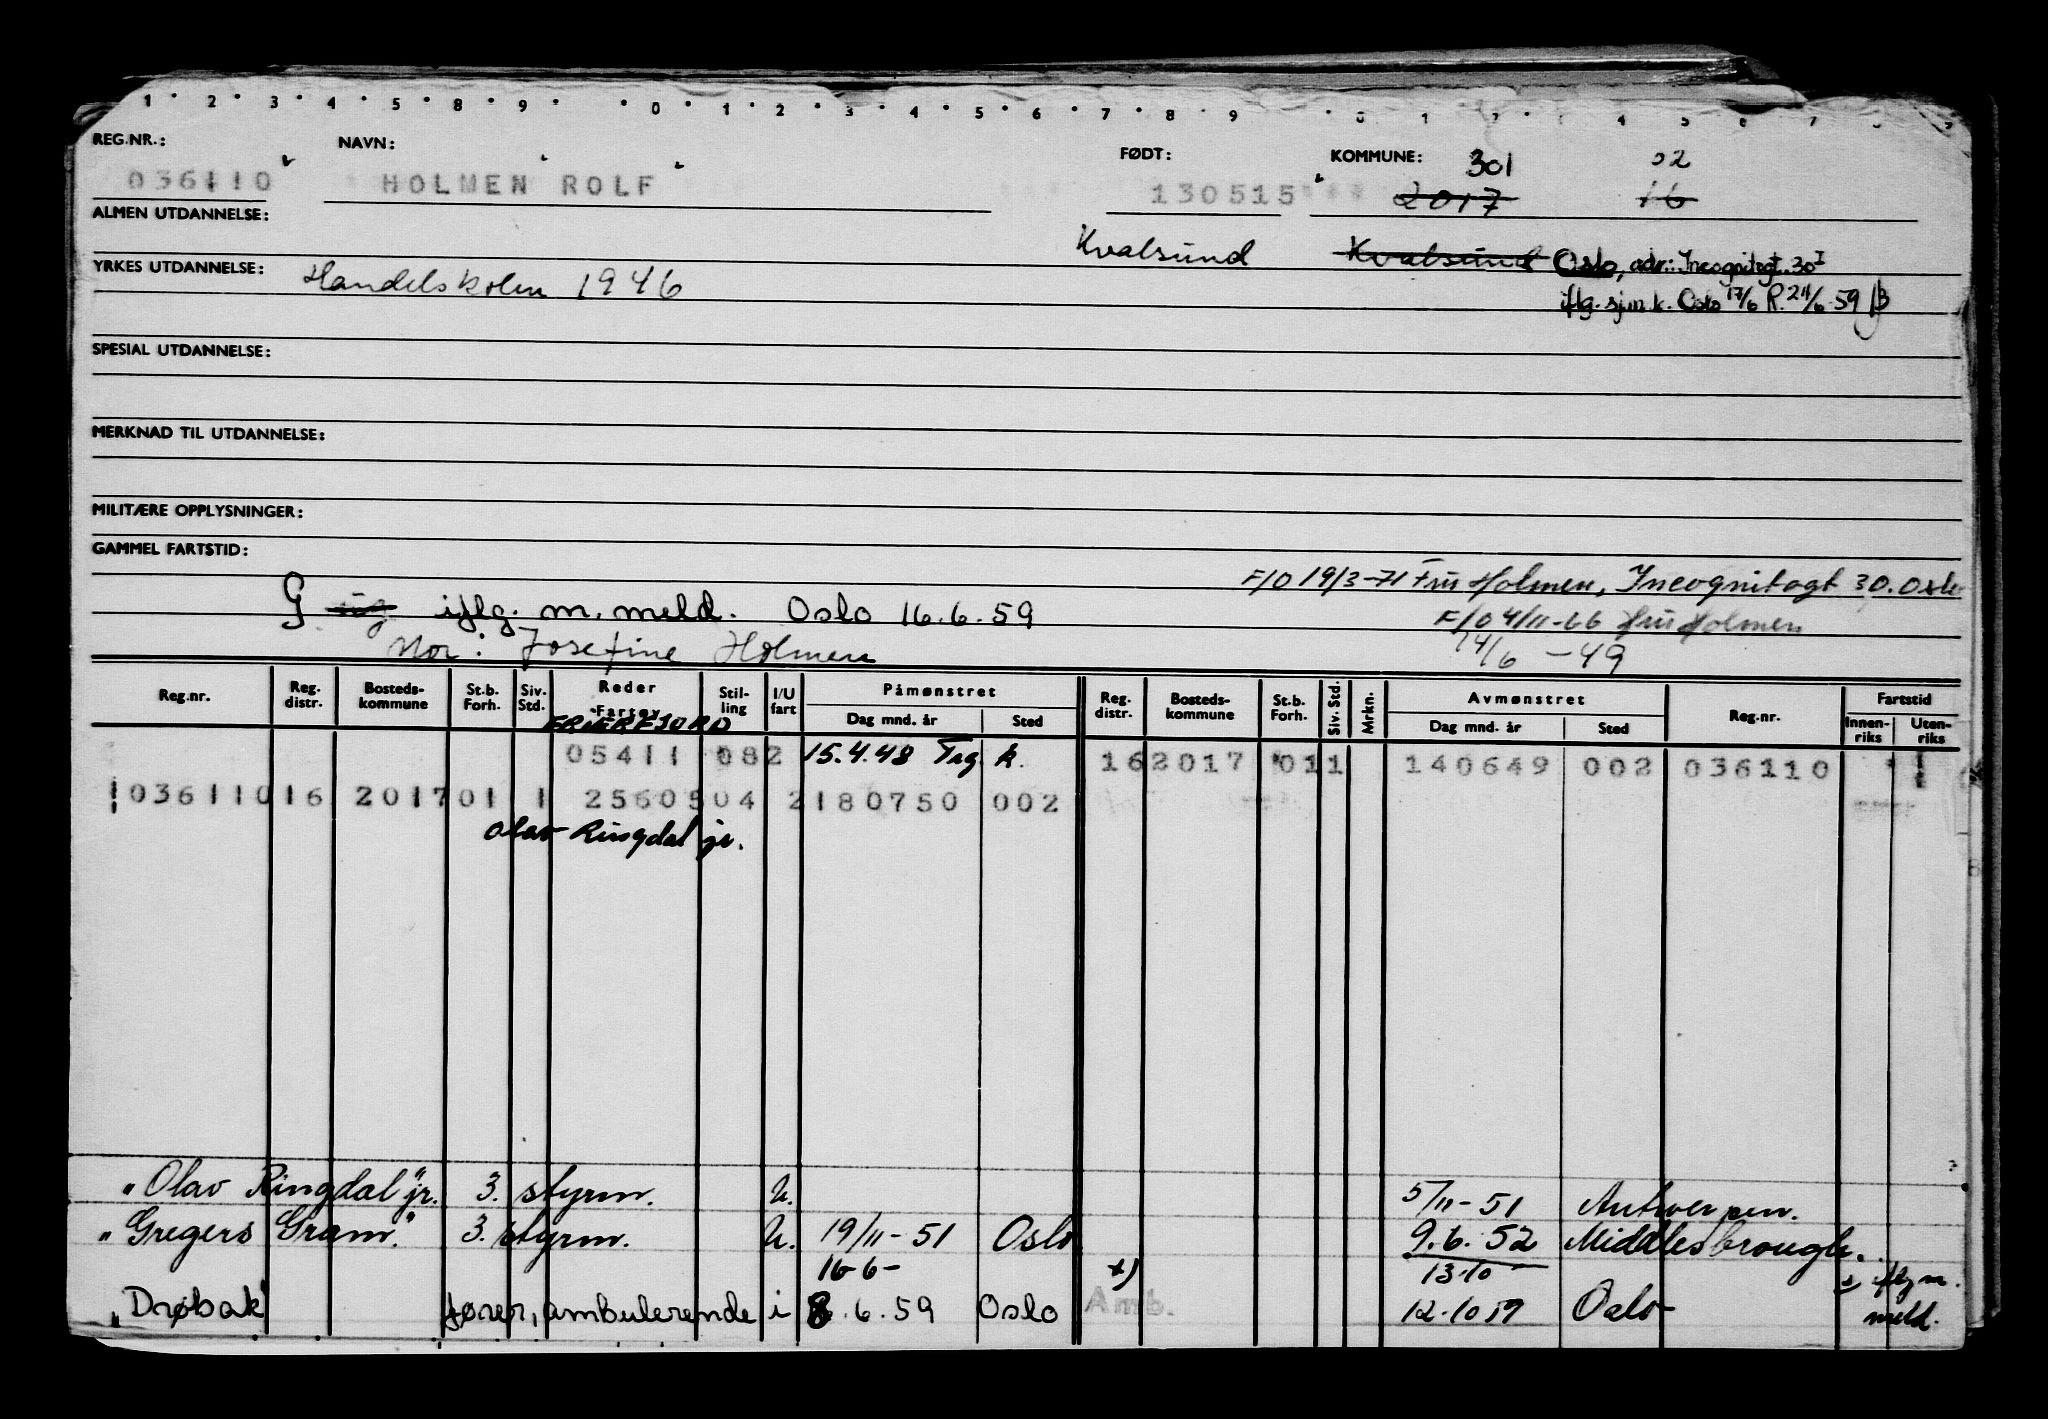 1 2 3 4 5 8 9 0 1 2 3 4 5 6 7 8 9 0 1 2 4 5 6 7
REG.NR.: NAVN: FØDT: KOMMUNE: 301 02
036110 HOLMEN ROLF 130515 2017 16
ALMEN UTDANNELSE:
Kvalsund Kvalsund Oslo, adr.: Incognitogt. 30 I
YRKES UTDANNELSE: Handelskolen 1946
iflg. sjm.k. Oslo 17/6 R. 24/6-59
SPESIAL UTDANNELSE:
MERKNAD TIL UTDANNELSE:
MILITÆRE OPPLYSNINGER:
GAMMEL FARTSTID:
F/O 19/3-71 Fru Holmen, Incognitogt 30. Oslo
G ug iflg. m. meld. Oslo 16.6.59
F/O 4/11-66 Fru Holmen
Mor: Josefine Holmen 14/6 -49
Reg.nr. Reg. distr. Bosteds-kommune St.b. Forh. Siv. Std. Reder Fartøy Stil-ling I/U fart Påmønstret Dag mnd. år Sted Reg. distr. Bosteds-kommune St.b. Forh. Siv. Std. Mrkn. Avmønstret Dag mnd. år Sted Reg.nr. Fartstid Innen-riks Uten-riks
FRIERFJORD
05411 082 15.4.48 Trg k. 16 2017 011 140649 002 036110
1 036110 16 2017 01 1 25605 04 2 180750 002
Olav Ringdal jr.
"Olav Ringdal" jr. 3. styrm. U. 5/11-51 Antwerpen.
"Gregers Gram." 3. styrm. U. 19/11-51 Oslo 9.6.52 Middlesbrough.
16-6- x) 13.10 x) iflg m.
"Drøbak" fører, ambulerende i 8.6.59 Oslo Amb. 12.10 59 Oslo meld.